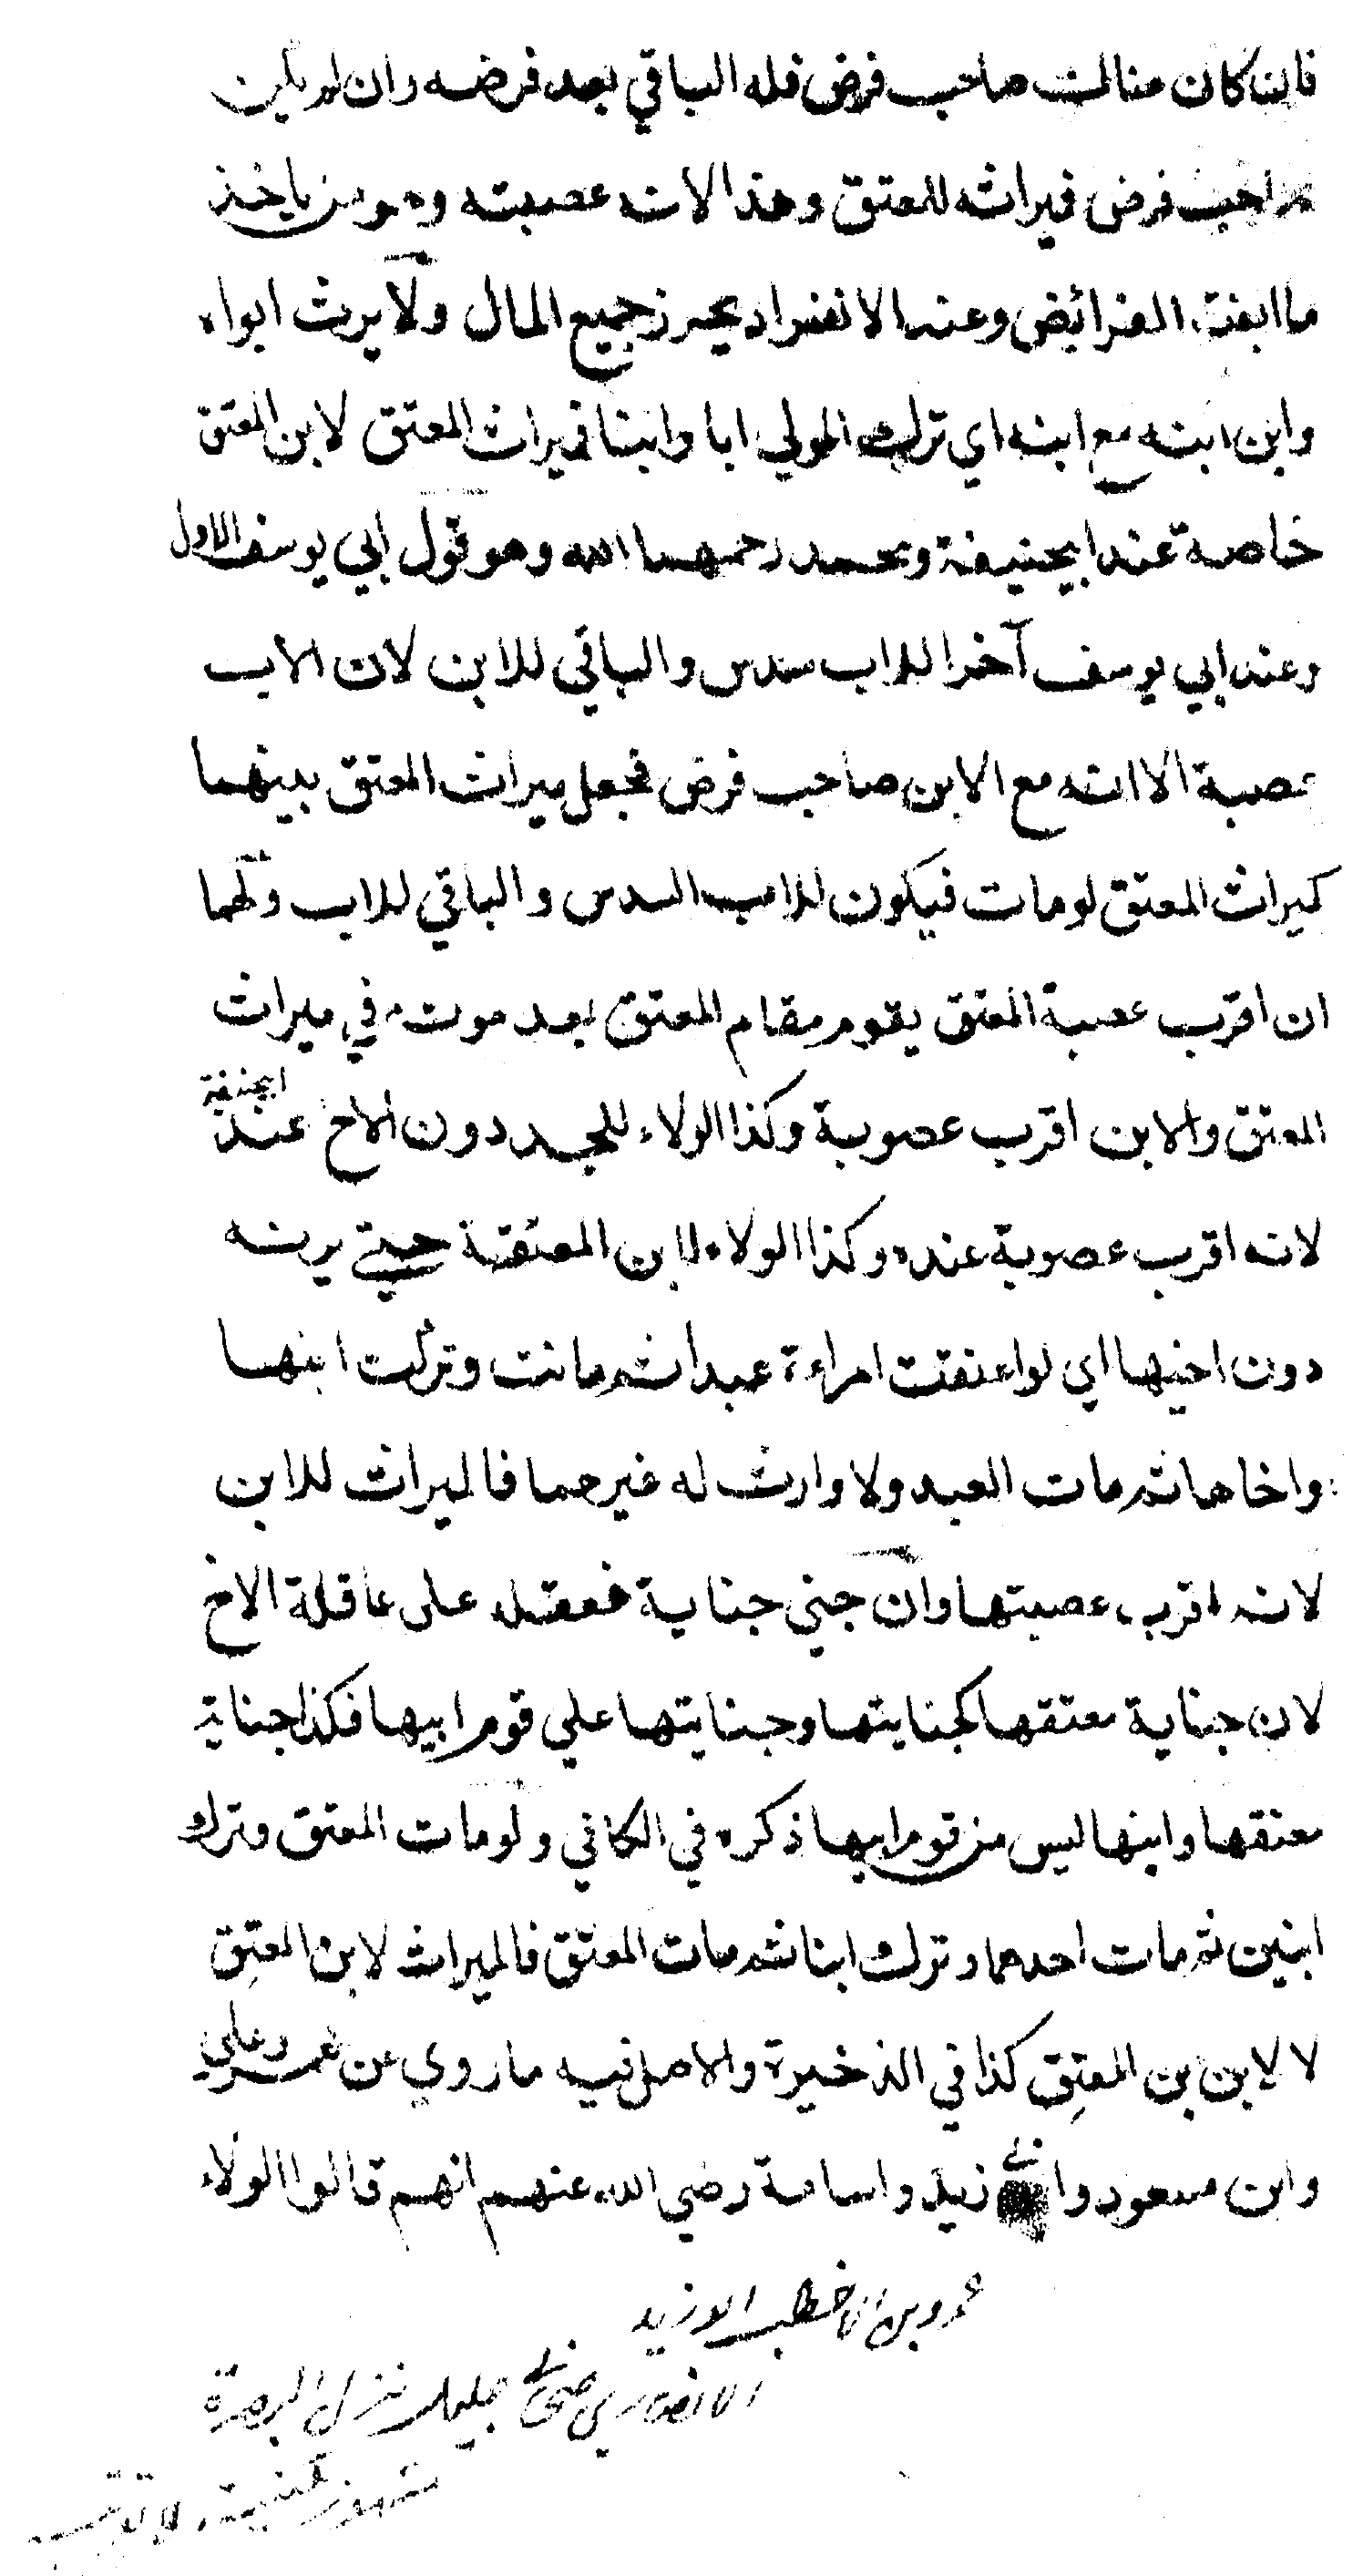 فان كان هنالك صاحب فرض فله الباقي بعد فرضه وان لم يكن
صاحب فرض فميراثه للمعتق وهذا لانه عصبته وهو من ياخذ
ما ابقته الفرائض وعند الانفراد يحرز جميع المال ولا يرث ابواه
وابن ابنه مع ابنه اي ترك المولي ابا وابنا فميراث المعتق لابن المعتق
خاصة عند ابيحنيفة ومحمد رحمهما الله وهو قول ابي يوسف الاول
وعند ابي يوسف آخرا للاب سدس والباقي للابن لان الاب
عصبة الا انه مع الابن صاحب فرض فجعل ميراث المعتق بينهما
كميراث المعتق لو مات فيكون للاب السدس والباقي للاب ولهما
ان اقرب عصبة المعتق يقوم مقام المعتق بعد موته في ميراث
المعتق والابن اقرب عصوبة وكذا الولاء للجد دون الاخ عند ابيحنيفة
لانه اقرب عصوبة عنده وكذا الولاء لابن المعتقة حتي يرثه
دون اخيها اي لو اعتقت امراءة عبدا ثم ماتت وتركت ابنها
واخاها ثم مات العبد ولا وارث له غيرهما فالميراث للابن
لانه اقرب عصبتها وان جني جناية فعقله على عاقلة الاخ
لان جناية معتقها كجنايتها وجنايتها علي قوم ابيها فكذا جناية
معتقها وابنها ليس من قوم ابيها ذكره في الكافي ولو مات المعتق وترك
ابنين ثم مات احدهما وترك ابنا ثم مات المعتق فالميراث لابن المعتِق
لا لابن بن المعتِق كذا في الذخيرة والاصل فيه ما روي عن عمر وعلي
وابن مسعود وابي زيد واسامة رضي الله عنهم انهم قالوا الولاء
عمرو بن اخطب ابو زيد
الانصاري صحابي جليل نزل البصرة
مشهور بكنيته